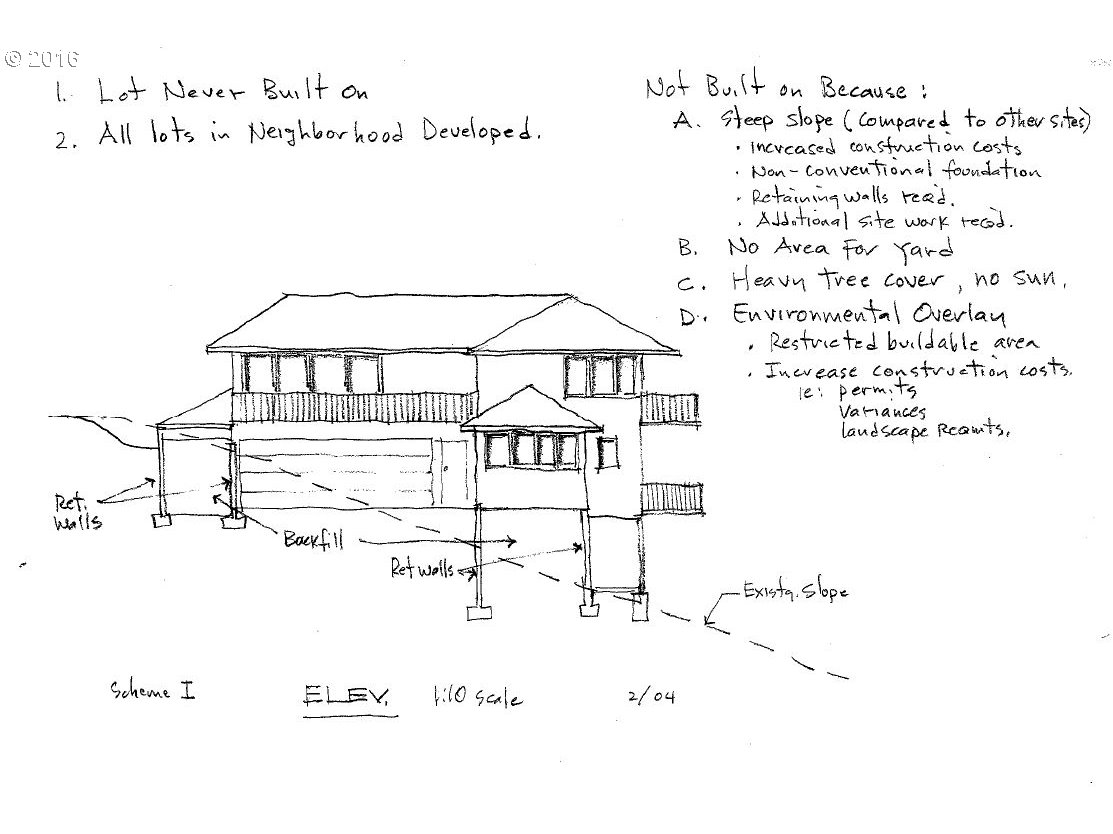 © 2016
1. Lot Never Built On
2. All lots in Neighborhood Developed.
Not Built on Because :
A. Steep slope (Compared to other sites)
• Increased construction costs
• Non-conventional foundation
• Retaining walls req'd.
• Additional site work reqd.
B. No Area For Yard
C. Heavy tree cover, no sun.
D. Environmental Overlay
• Restricted buildable area
• Increase construction costs.
ie: permits
Variances
landscape Reqmts.
Ret. Walls
Backfill
Ret walls
Existg. Slope
Scheme I
ELEV.
1:10 scale
2/04